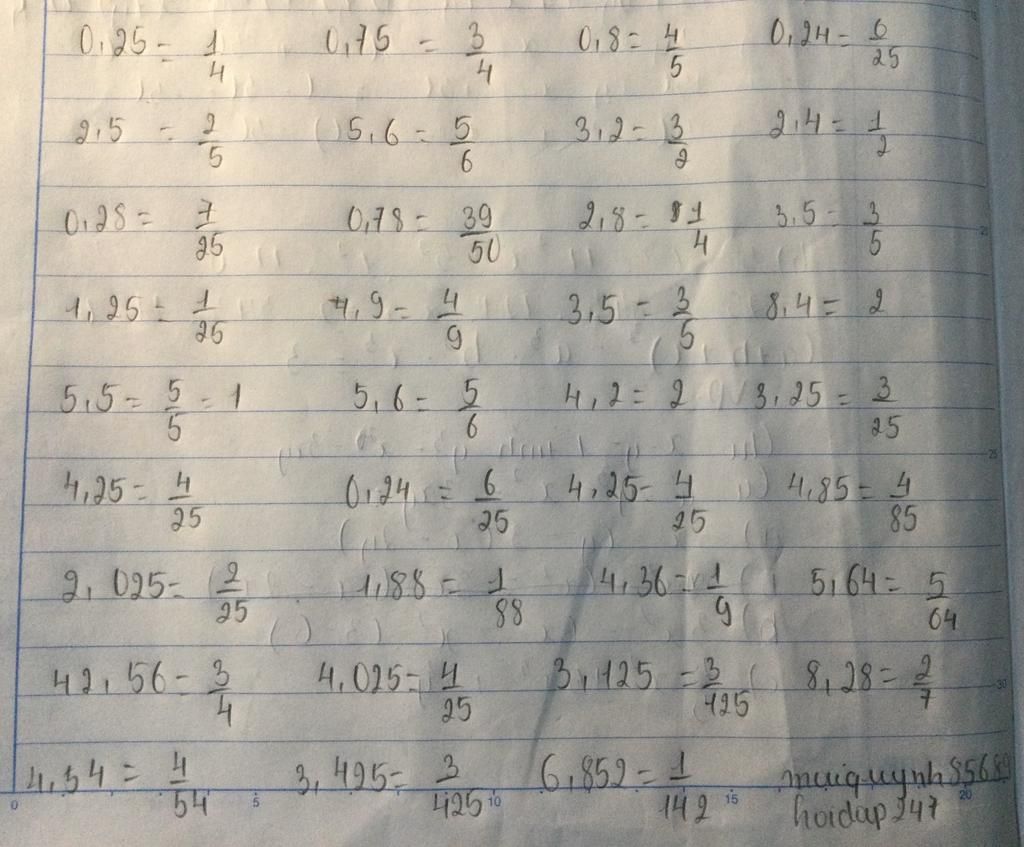 0,25 = 1/4 0,75 = 3/4 0,8 = 4/5 0,24 = 6/25
2,5 = 2/5 5,6 = 5/6 3,2 = 3/2 2,4 = 1/2
0,28 = 7/25 0,78 = 39/50 2,8 = 1/4 3,5 = 3/5
1,25 = 1/25 4,9 = 4/9 3,5 = 3/5 8,4 = 2
5,5 = 5/5 = 1 5,6 = 5/6 4,2 = 2 3,25 = 3/25
4,25 = 4/25 0,24 = 6/25 4,25 = 4/25 4,85 = 4/85
2,025 = 2/25 1,88 = 1/88 4,36 = 1/9 5,64 = 5/64
42,56 = 3/4 4,025 = 4/25 3,125 = 3/125 8,28 = 2/7
4,54 = 4/54 3,425 = 3/425 6,852 = 1/142 muiquynh85689
hoidap247
0 5 10 15 20